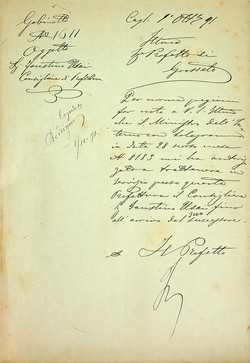 Gabinetto
N° 1611
Oggetto
Faustino Usai
Consigliere di Prefettura
Cagl. 1° Ott. 91
Prefetto di
Grosseto
Per norma
noto a V. S. Ill.ma
che il Ministro dell'In
terno con telegramma
in data 28 scorso mese
N 8183 mi ha autoriz
zato a trattenere in
servizio presso questa
Prefettura il Consigliere
Faustino Usai fino
all'arrivo del successore
Il Prefetto